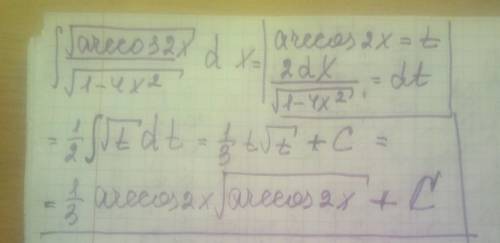 ∫ √(arccos2x) / √(1-4x²) dx = | arccos2x = t
2dx / √(1-4x²) = dt |
= 1/2 ∫ √t dt = 1/3 t√t + C =
= 1/3 arccos2x √(arccos2x) + C